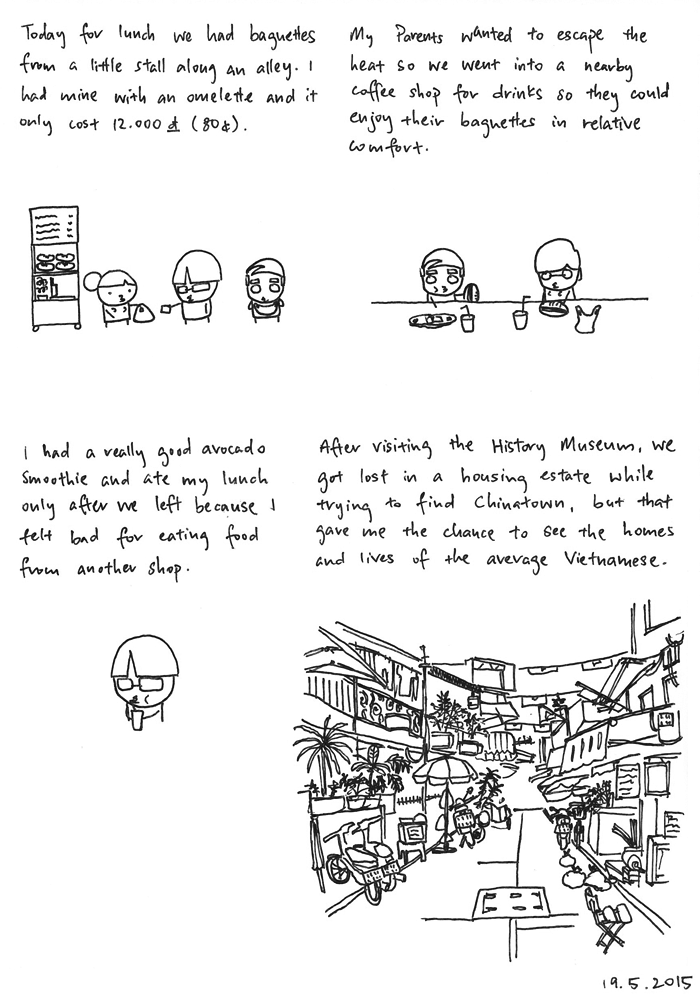 Today for lunch we had baguettes
from a little stall along an alley. I
had mine with an omelette and it
only cost 12.000 ₫ (80¢).
My Parents wanted to escape the
heat so we went into a nearby
coffee shop for drinks so they could
enjoy their baguettes in relative
comfort.
I had a really good avocado
smoothie and ate my lunch
only after we left because I
felt bad for eating food
from another shop.
After visiting the History Museum, we
got lost in a housing estate while
trying to find Chinatown, but that
gave me the chance to see the homes
and lives of the average Vietnamese.
19.5.2015